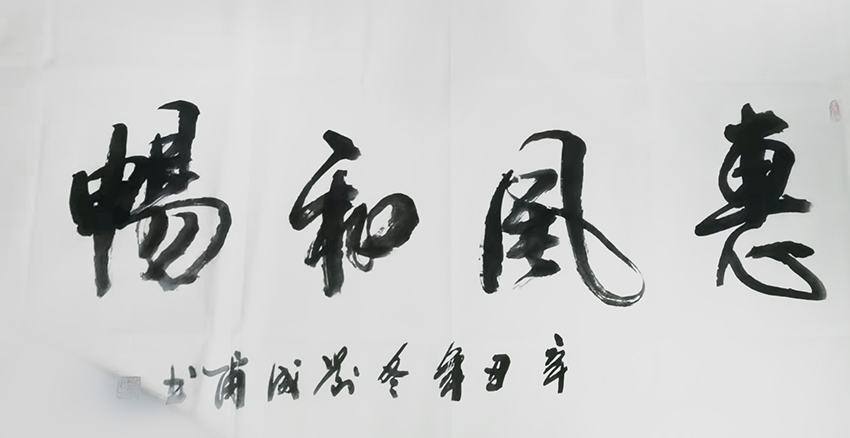 惠風和暢
辛丑年冬劉成甫书